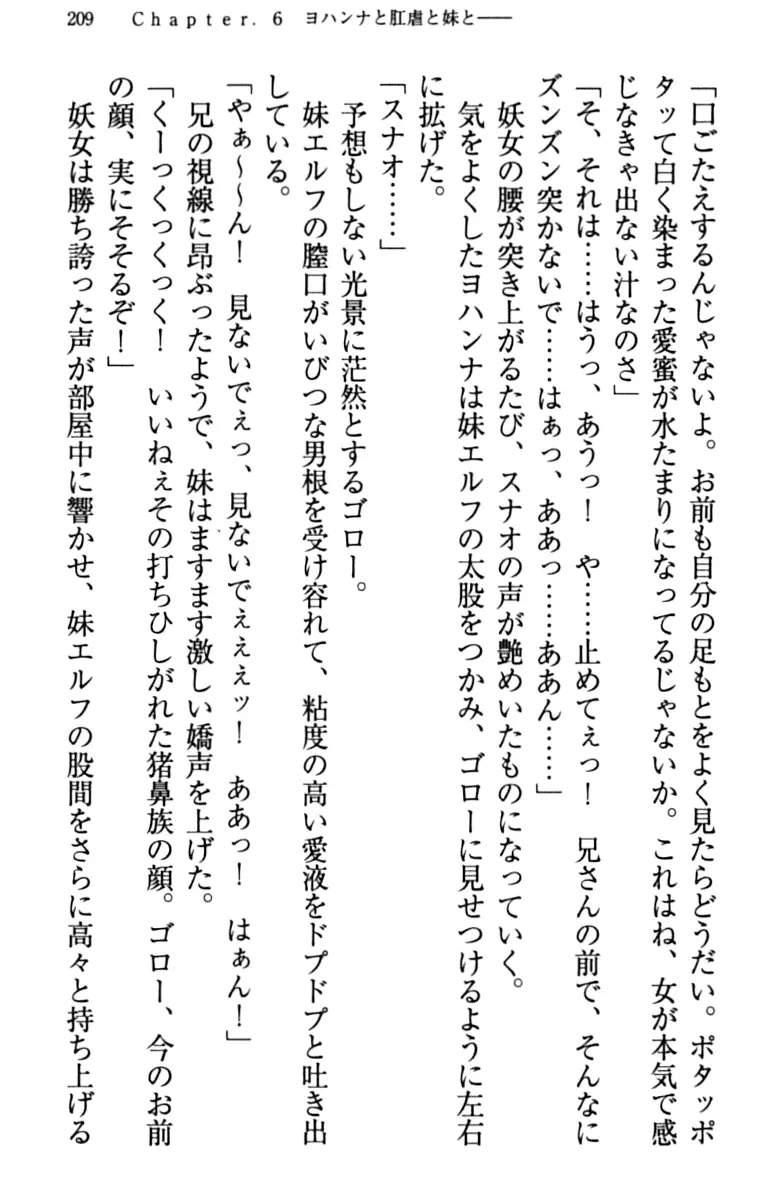 209　Chapter. 6　ヨハンナと肛虐と妹と――
「口ごたえするんじゃないよ。お前も自分の足もとをよく見たらどうだい。ポタッポ
タッて白く染まった愛蜜が水たまりになってるじゃないか。これはね、女が本気で感
じなきゃ出ない汁なのさ」
「そ、それは……はうっ、あうっ！　や……止めてぇっ！　兄さんの前で、そんなに
ズンズン突かないで……はぁっ、ああっ……ああん……」
　妖女の腰が突き上がるたび、スナオの声が艶めいたものになっていく。
　気をよくしたヨハンナは妹エルフの太股をつかみ、ゴローに見せつけるように左右
に拡げた。
「スナオ……」
　予想もしない光景に茫然とするゴロー。
　妹エルフの膣口がいびつな男根を受け容れて、粘度の高い愛液をドプドプと吐き出
している。
「やぁ～～ん！　見ないでぇっ、見ないでぇぇぇッ！　ああっ！　はぁん！」
　兄の視線に昂ぶったようで、妹はますます激しい嬌声を上げた。
「くーっくっくっく！　いいねぇその打ちひしがれた猪鼻族の顔。ゴロー、今のお前
の顔、実にそそるぞ！」
　妖女は勝ち誇った声が部屋中に響かせ、妹エルフの股間をさらに高々と持ち上げる